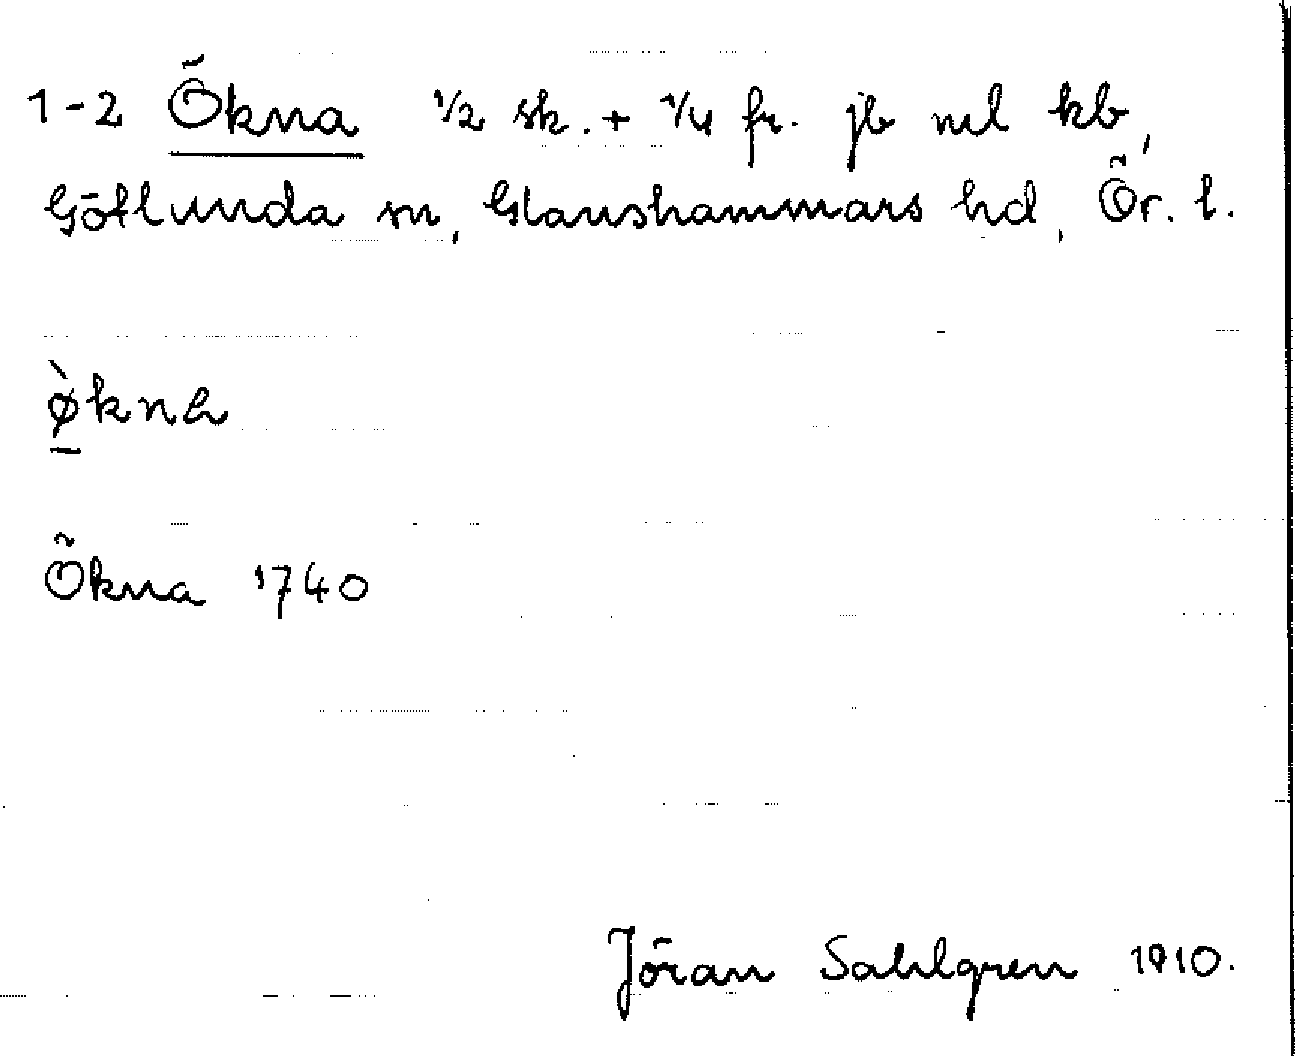 1-2 Ökna ½ sk. + ¼ fr. jb ml kb,
Götlunda sn, Glanshammars hd, Ör. l.
ø̀kna
Ökna 1740
Jöran Sahlgren 1910.